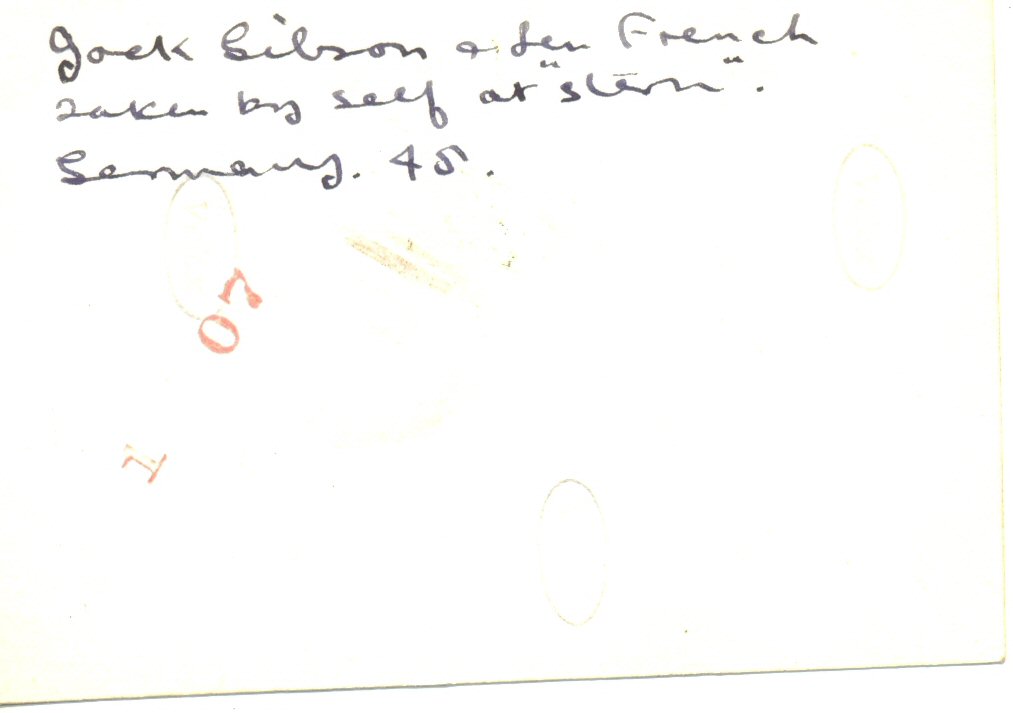 Jock Gibson & Len French
taken by self at "Stern".
Germany. 45.
07
1